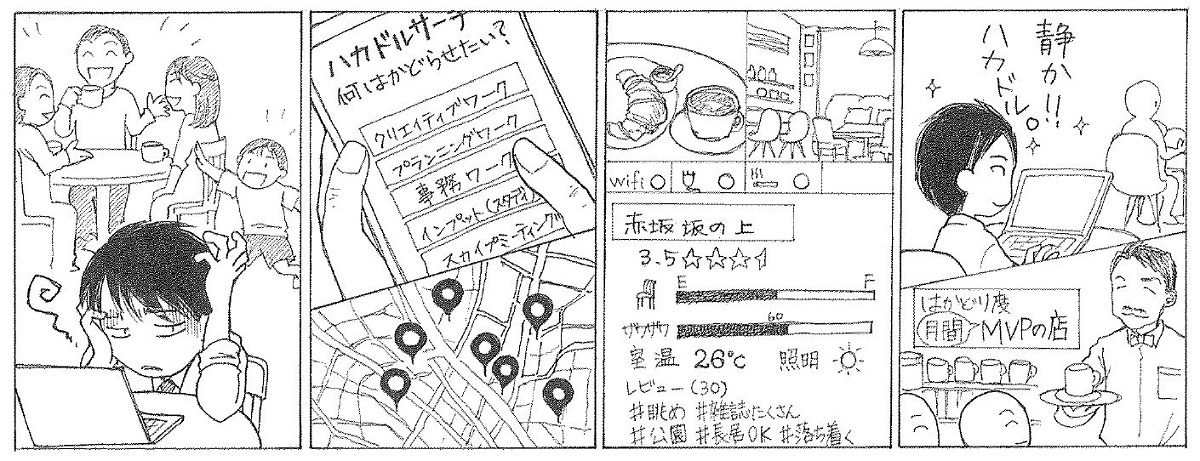 ハカドルサーチ
何はかどらせたい?
クリエイティブワーク
プランニングワーク
事務ワーク
インプット(スタディ)
スカイプミーティング
wifi○
○
○
赤坂 坂の上
3.5☆☆☆
E F
ザワザワ 60
室温 26℃ 照明
レビュー(30)
#眺め #雑誌たくさん
#公園 #長居OK #落ち着く
静か!!
ハカドル。
はかどり度
月間 MVPの店